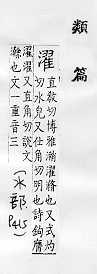 類篇
濯
直敎切博雅澣濯將也又式灼
切水皃又仕角切明也詩鉤膺
濯濯又直角切說文
澣也文一重音三
(水部
P415)